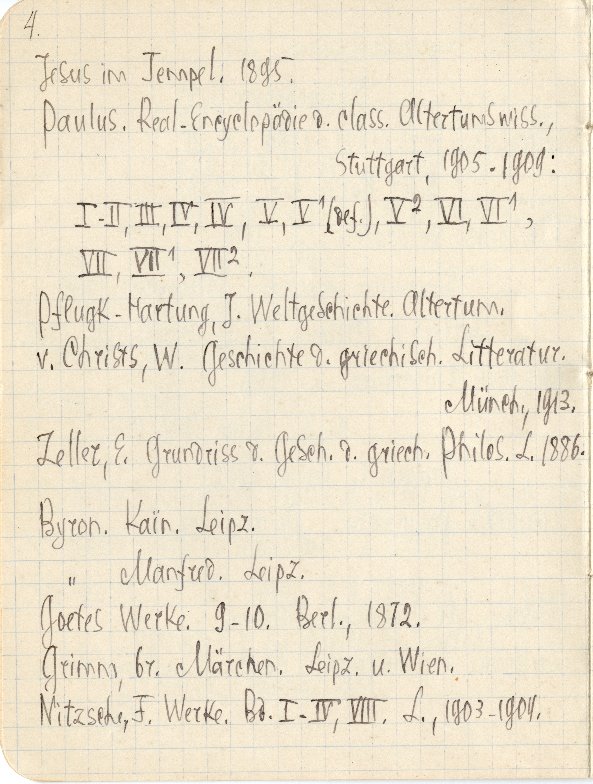 4.
Jesus im Tempel. 1895.
Paulus. Real-Encyclopädie d. class. Altertumswiss.,
Stuttgart, 1905-1909:
I-II, III, IV, IV, V, V¹ (def.), V², VI, VI¹,
VII, VII¹, VII².
Pflugk-Hartung, J. Weltgeschichte. Altertum.
v. Christs, W. Geschichte d. griechisch. Litteratur.
Münch., 1913.
Zeller, E. Grundriss d. Gesch. d. griech. Philos. L. 1886.
Byron. Kaïn. Leipz.
„ Manfred. Leipz.
Goetes Werke. 9-10. Berl., 1872.
Grimm, br. Märchen. Leipz. u. Wien.
Nitzsche, F. Werke. Bd. I-IV, VIII. L., 1903-1904.